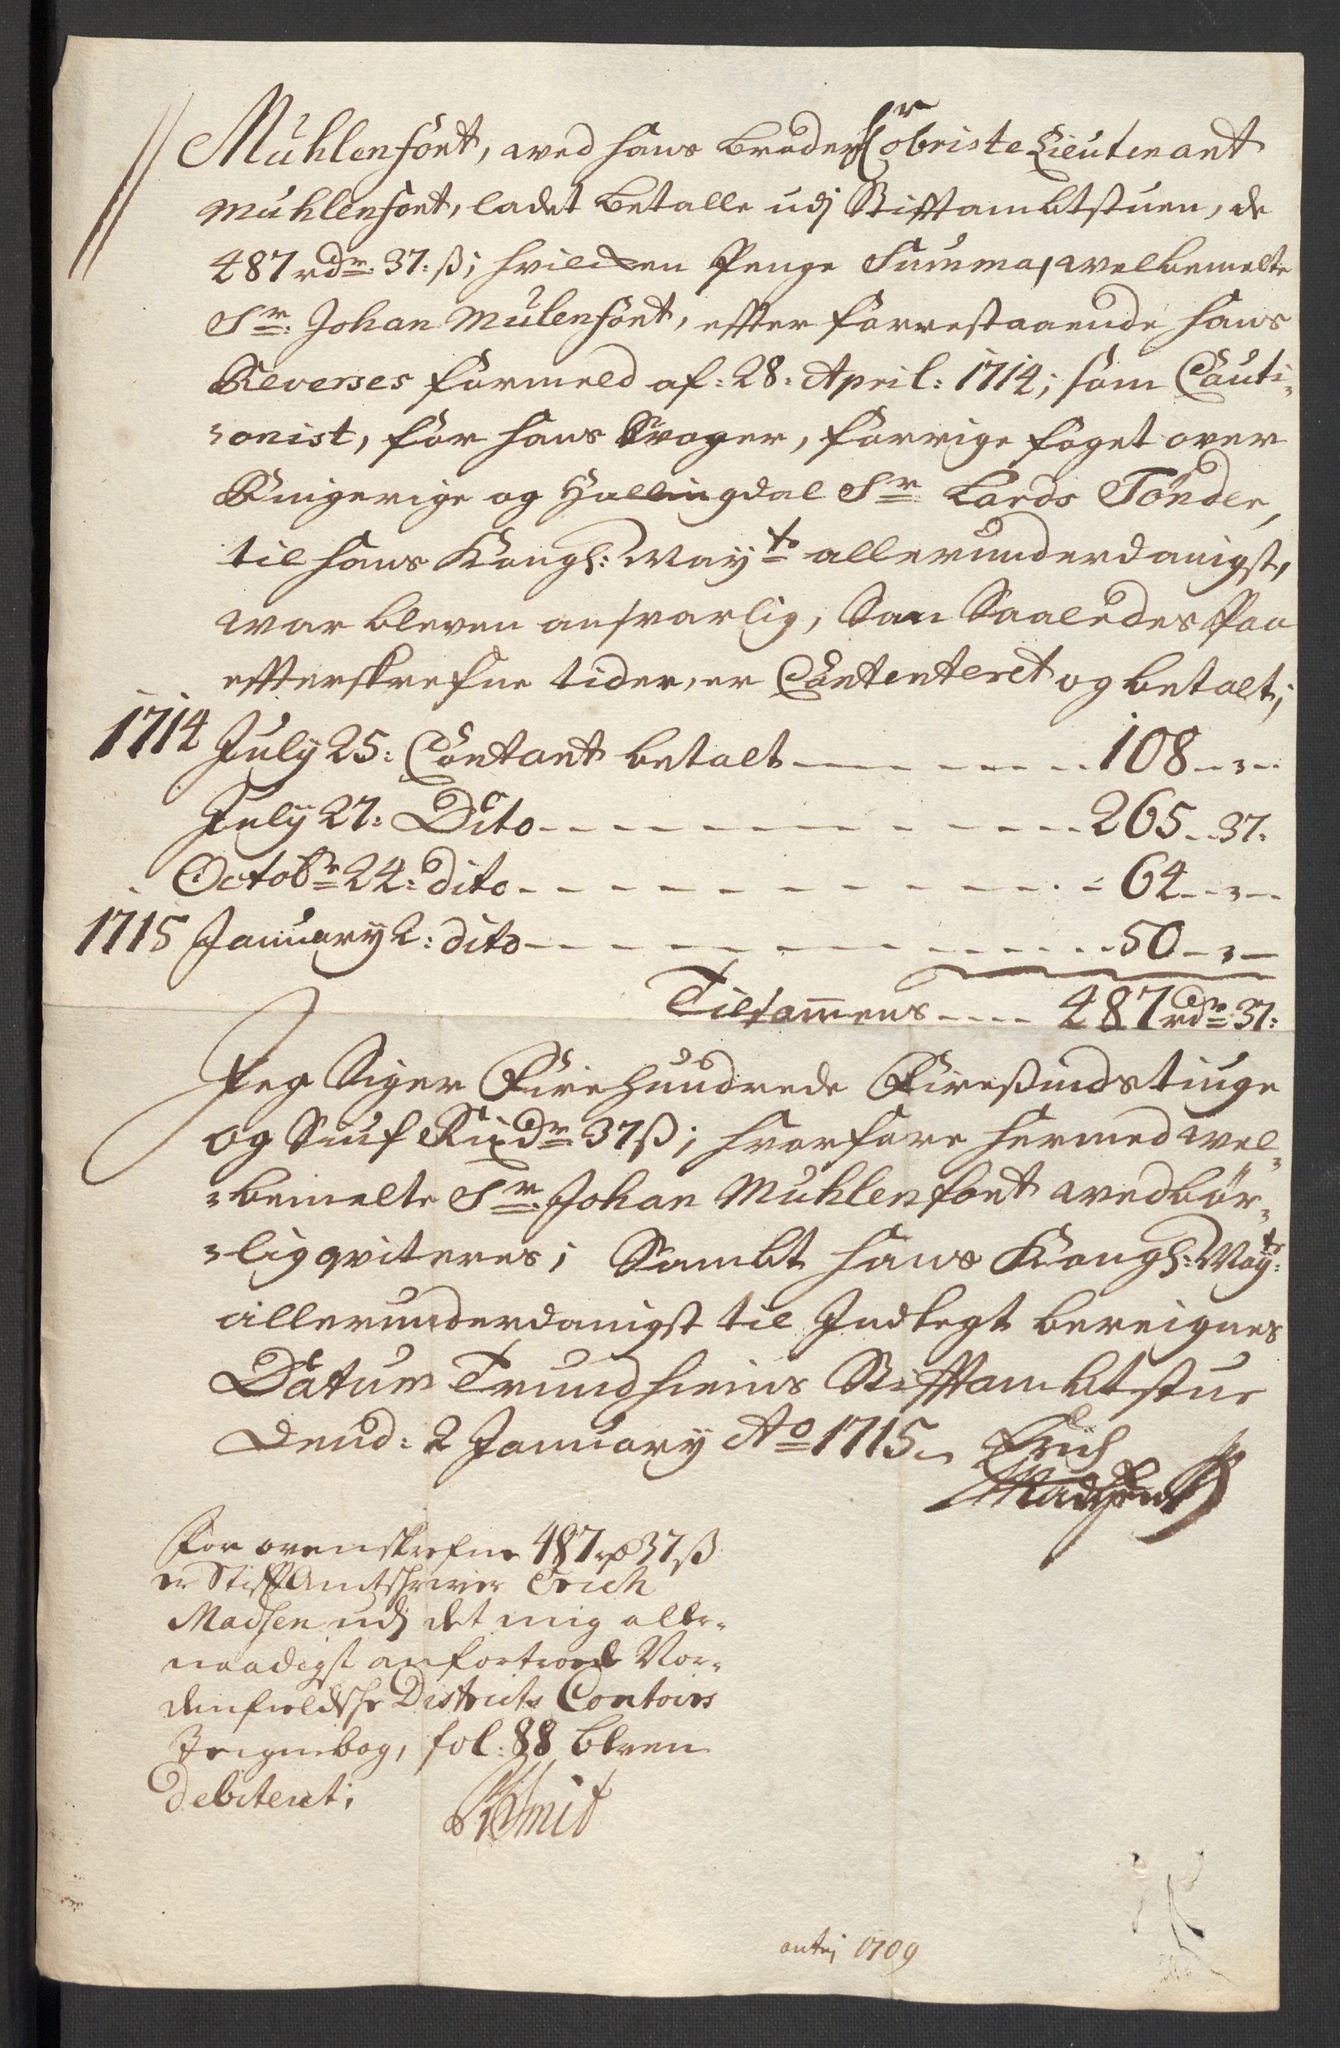 Mühlenfort, wed hans broder Hr obriste Lieutenant
Mühlenfort, ladet betalle udj Stiftambtstuen, de
487 rdr. 37: ß; hvilcken Penge Summa, welbemelte
Sr. Johan Mülenfort, effter forrestaaende hans
Reverses formeld af: 28: April: 1714; som Cauti-
-onist, for hans Svoger, forrige foget over
Ringerige og Hallingdal Sr Lards Tönder,
til hans Kongl: Mayts allerunderdanigst,
war bleven ansvarlig, Som Saaledes Paa
effterskrefne tider, er Contenteret og betalt;
1714 July 25: Contant betalt - - - - 108 - " -
July 27: Dito - - - - 265 - 37:
Octobr 24: dito - - - - 64 - " -
1715 January 2: dito - - - - 50 - " -
Tilsammens - - - - 487 rdr 37:
Jeg Siger Firehundrede Firesindstiuge
og Siuf Rixdr 37 ß; hvorfore hermed wel-
-bemelte Sr. Johan Mühlenfort wedbör-
-lig qviteres; Sambt hans Kongl: Mayts:
allerunderdanigst til Indtegt bereignes
Datum Trundhiems Stifftambtstue
Dend: 2 January Ao 1715.. Erich
Madhsen
For ovenskrefne 487 rd 37 ß
er StifftAmtschriver Erich
Madsen udj det mig aller-
naadigst anfortroede Nor-
denfieldsche Districts Contoirs
Reignebog, fol: 88 bleven
Debiteret;
Smit
antj 1709